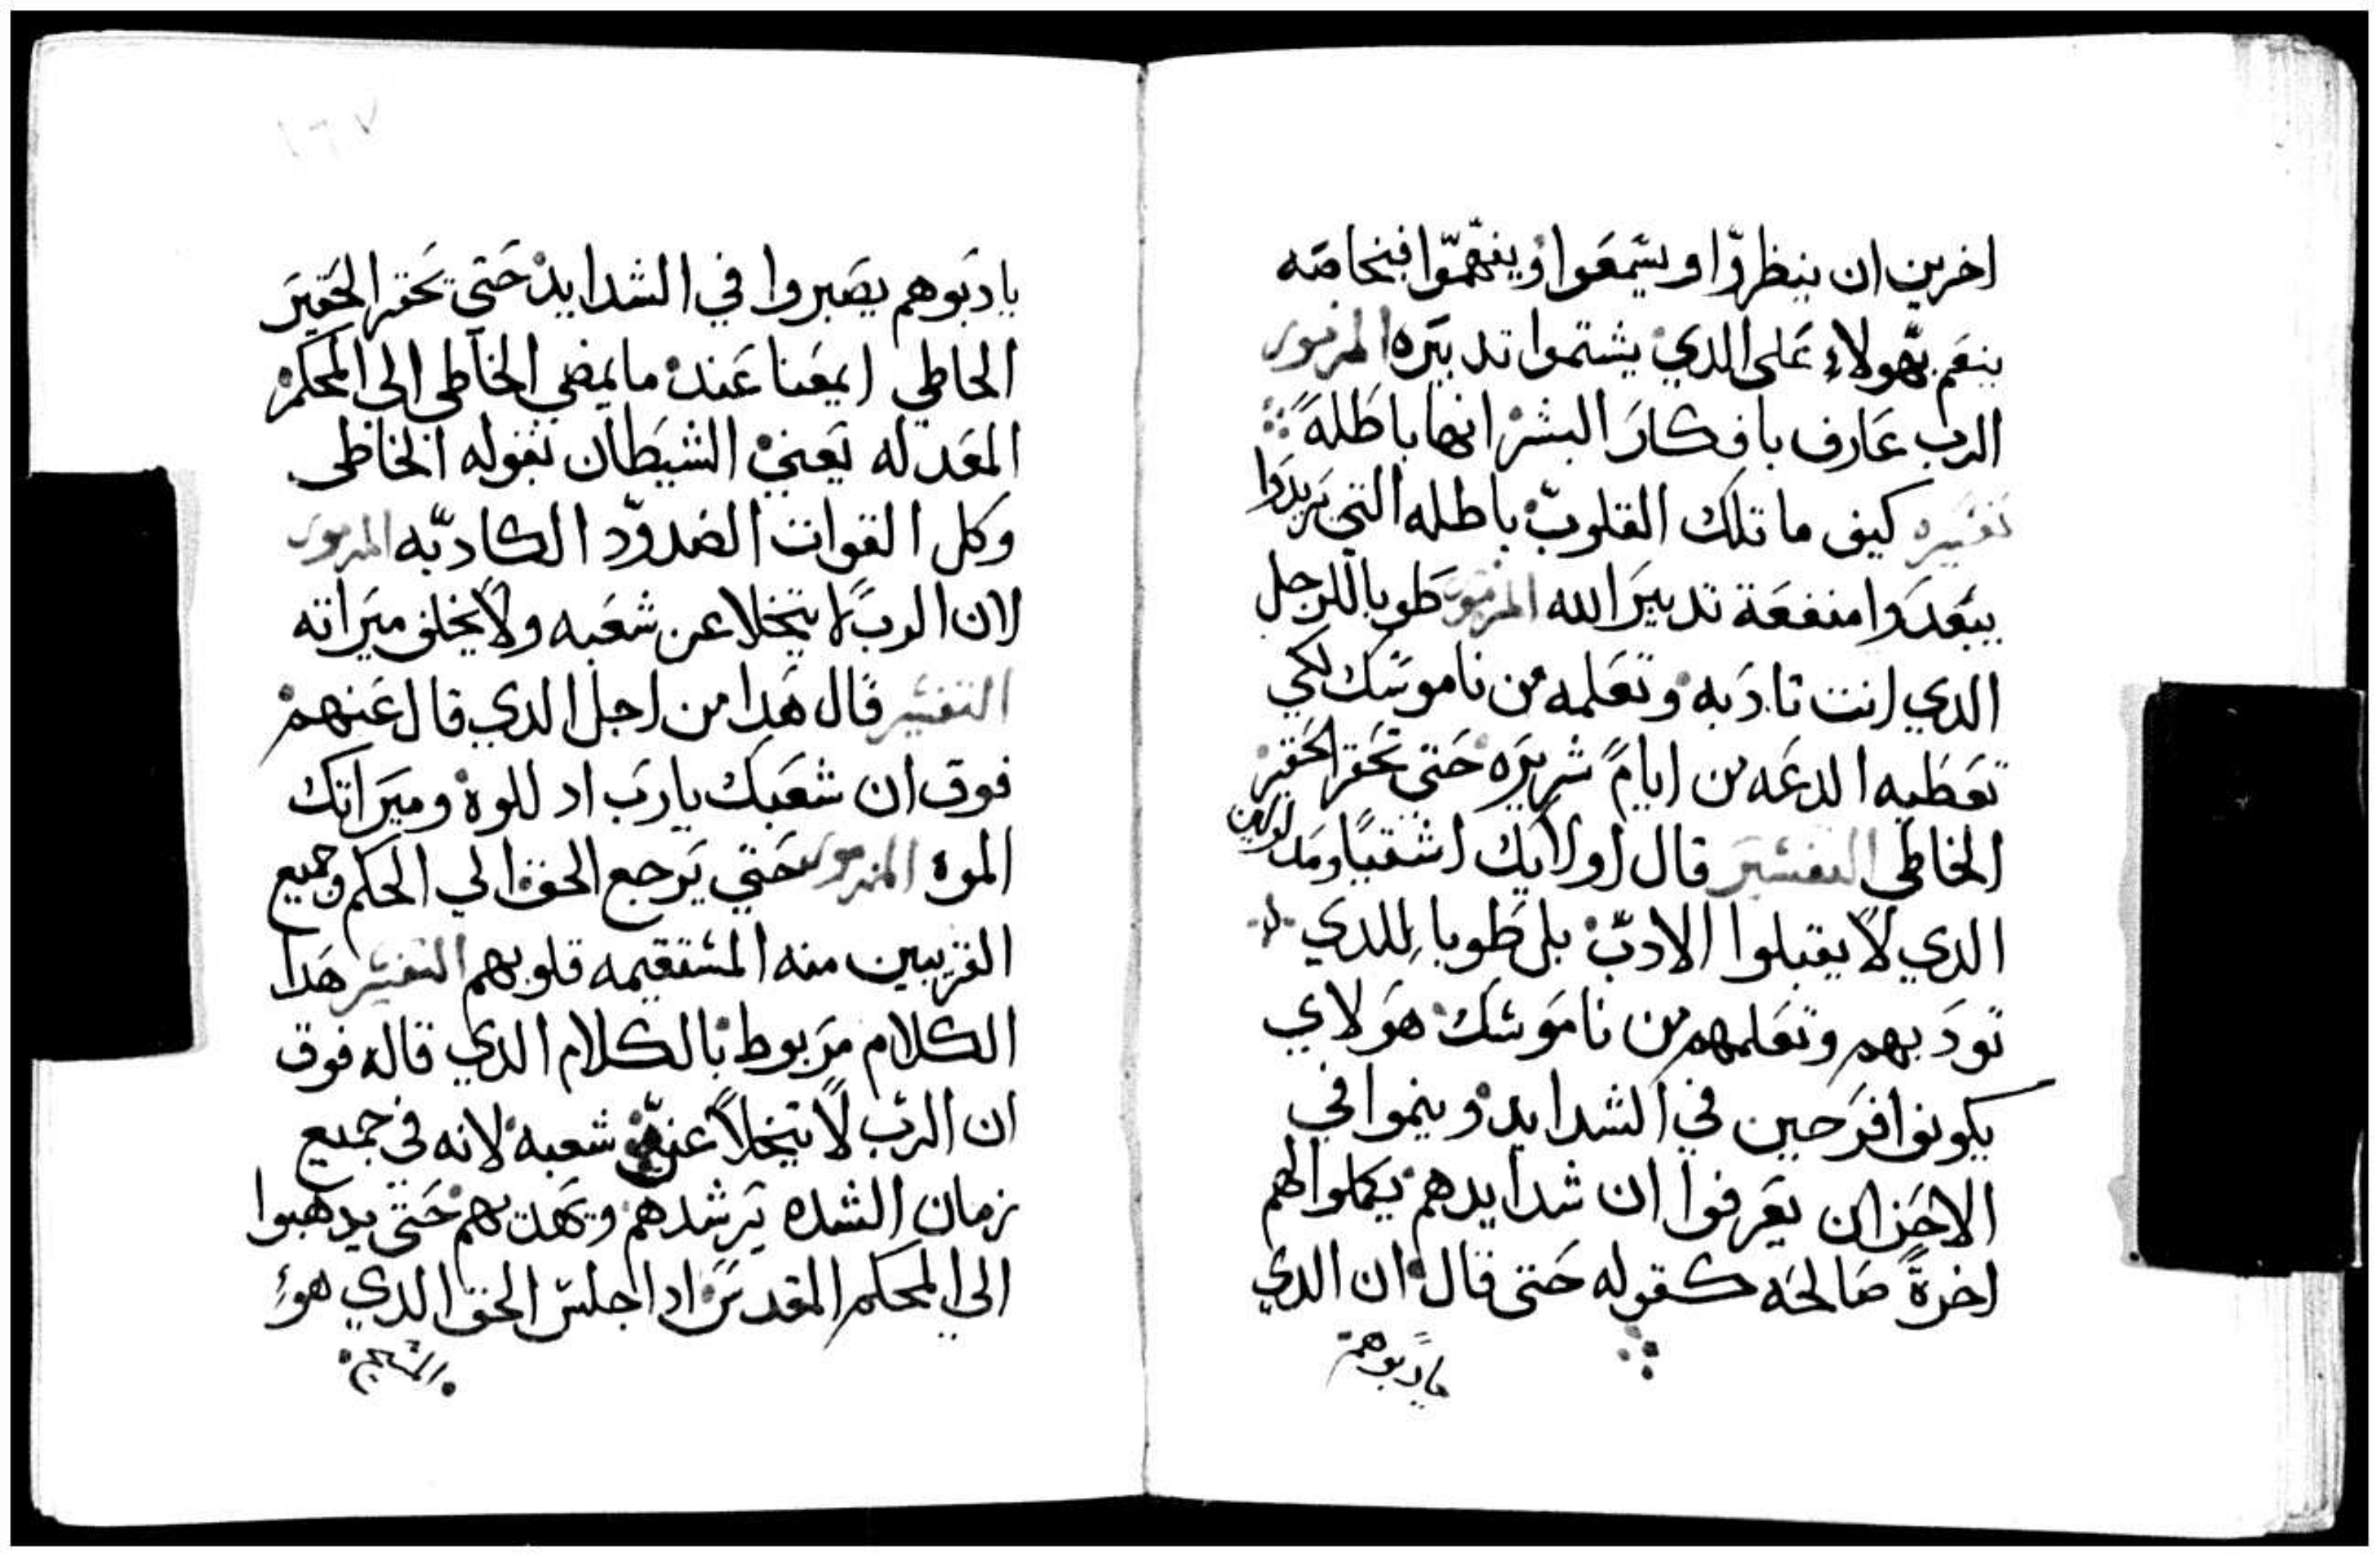 اخرين ان ينظروّا ويسَّمعَوا ويفهّموّا فبخاصَه
ينعَم بهّولاء عَلى الدي يشتموا تدبيَره المزمور
الرب عَارف بافكارَ البشرْ انها باطَلهً
تفسَيره كيف ما تلك القلوبّ باطله التي يَريدَوا
يبَعدَوا منفعَة تدبيرَ الله المزمور طَوبا للرجل
الدي انت تادَبه وتعَلمه من ناموسَك لكي
تعَطيه الدعَه من ايامً شريرَه حَتى تحَفر الحَفيرْ
الخاطي التفسَير قال اولايك اشقيًا ومَدلولين
الدي لاً يقبلوا الادبّ بل طَوبا للدي
تودَبهم وتعَلمهم من نامَوسَك هَولاي
يكونوا فرَحين في الشدايد وينموا في
الاحَزان يعَرفوا ان شدايدهم يكملوا لهم
اخرةً صَالحَه كقوله حَتى قال ان الدي
يادَبوهم
١٦٧
يادَبوهم يصَبروا في الشدايد حَتي تحَفر الحَفيرَ
الخاطي ايمعَنا عَند ما يمضي الخاطي الى المحَكمْ
المعَد له يَعني الشيطَان بقوله الخاطى
وكل القوات الضدوّد الكادبّه المزمور
لان الربً لا يتخلا عن شعَبه ولاَ يخلف ميَراته
التفسَير قال هَدا من اجل الدي قال عَنهم
فوق ان شعَبك يارَب ادللوه وميَراتك
الموه المزمور حَتي يَرجع الحق الي الحكم وجميع
القريبين منه المسَتقيمه قلوبهم التفسَير هَدا
الكلام مَربوط بالكلام الدي قاله فوق
ان الربّ لاً يتخلاً عن شعبه لانه في جميع
زمان الشده يَرشدهم ويَهدبهم حَتى يدهَبوا
الى المحكم المقدسَ ادا جلسَ الحق الدي هوَ
المسَيح